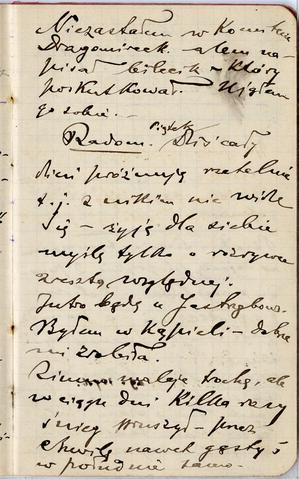 Nie zastałem w Komitecie
Dragomireck. alem na-
pisał bilecik – który
poskutkował.
go sobie. –
Radom. Piątek Dziś cały
dzień próżnuję rzetelnie
t. j. z nikim nie widzę
się – żyję dla siebie
myślę tylko o rozrywce
zresztą względnej.
Jutro będę u Jastrzębow.
Byłem w kąpieli – dobrze
mi zrobiła.
Zimno trochę, ale
w ciągu dni kilka razy
śnieg pruszył – przez
chwilę nawet gęsty i
w południe samo.